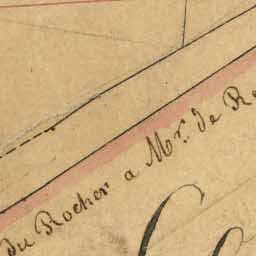 du Rocher a Mr. de Re